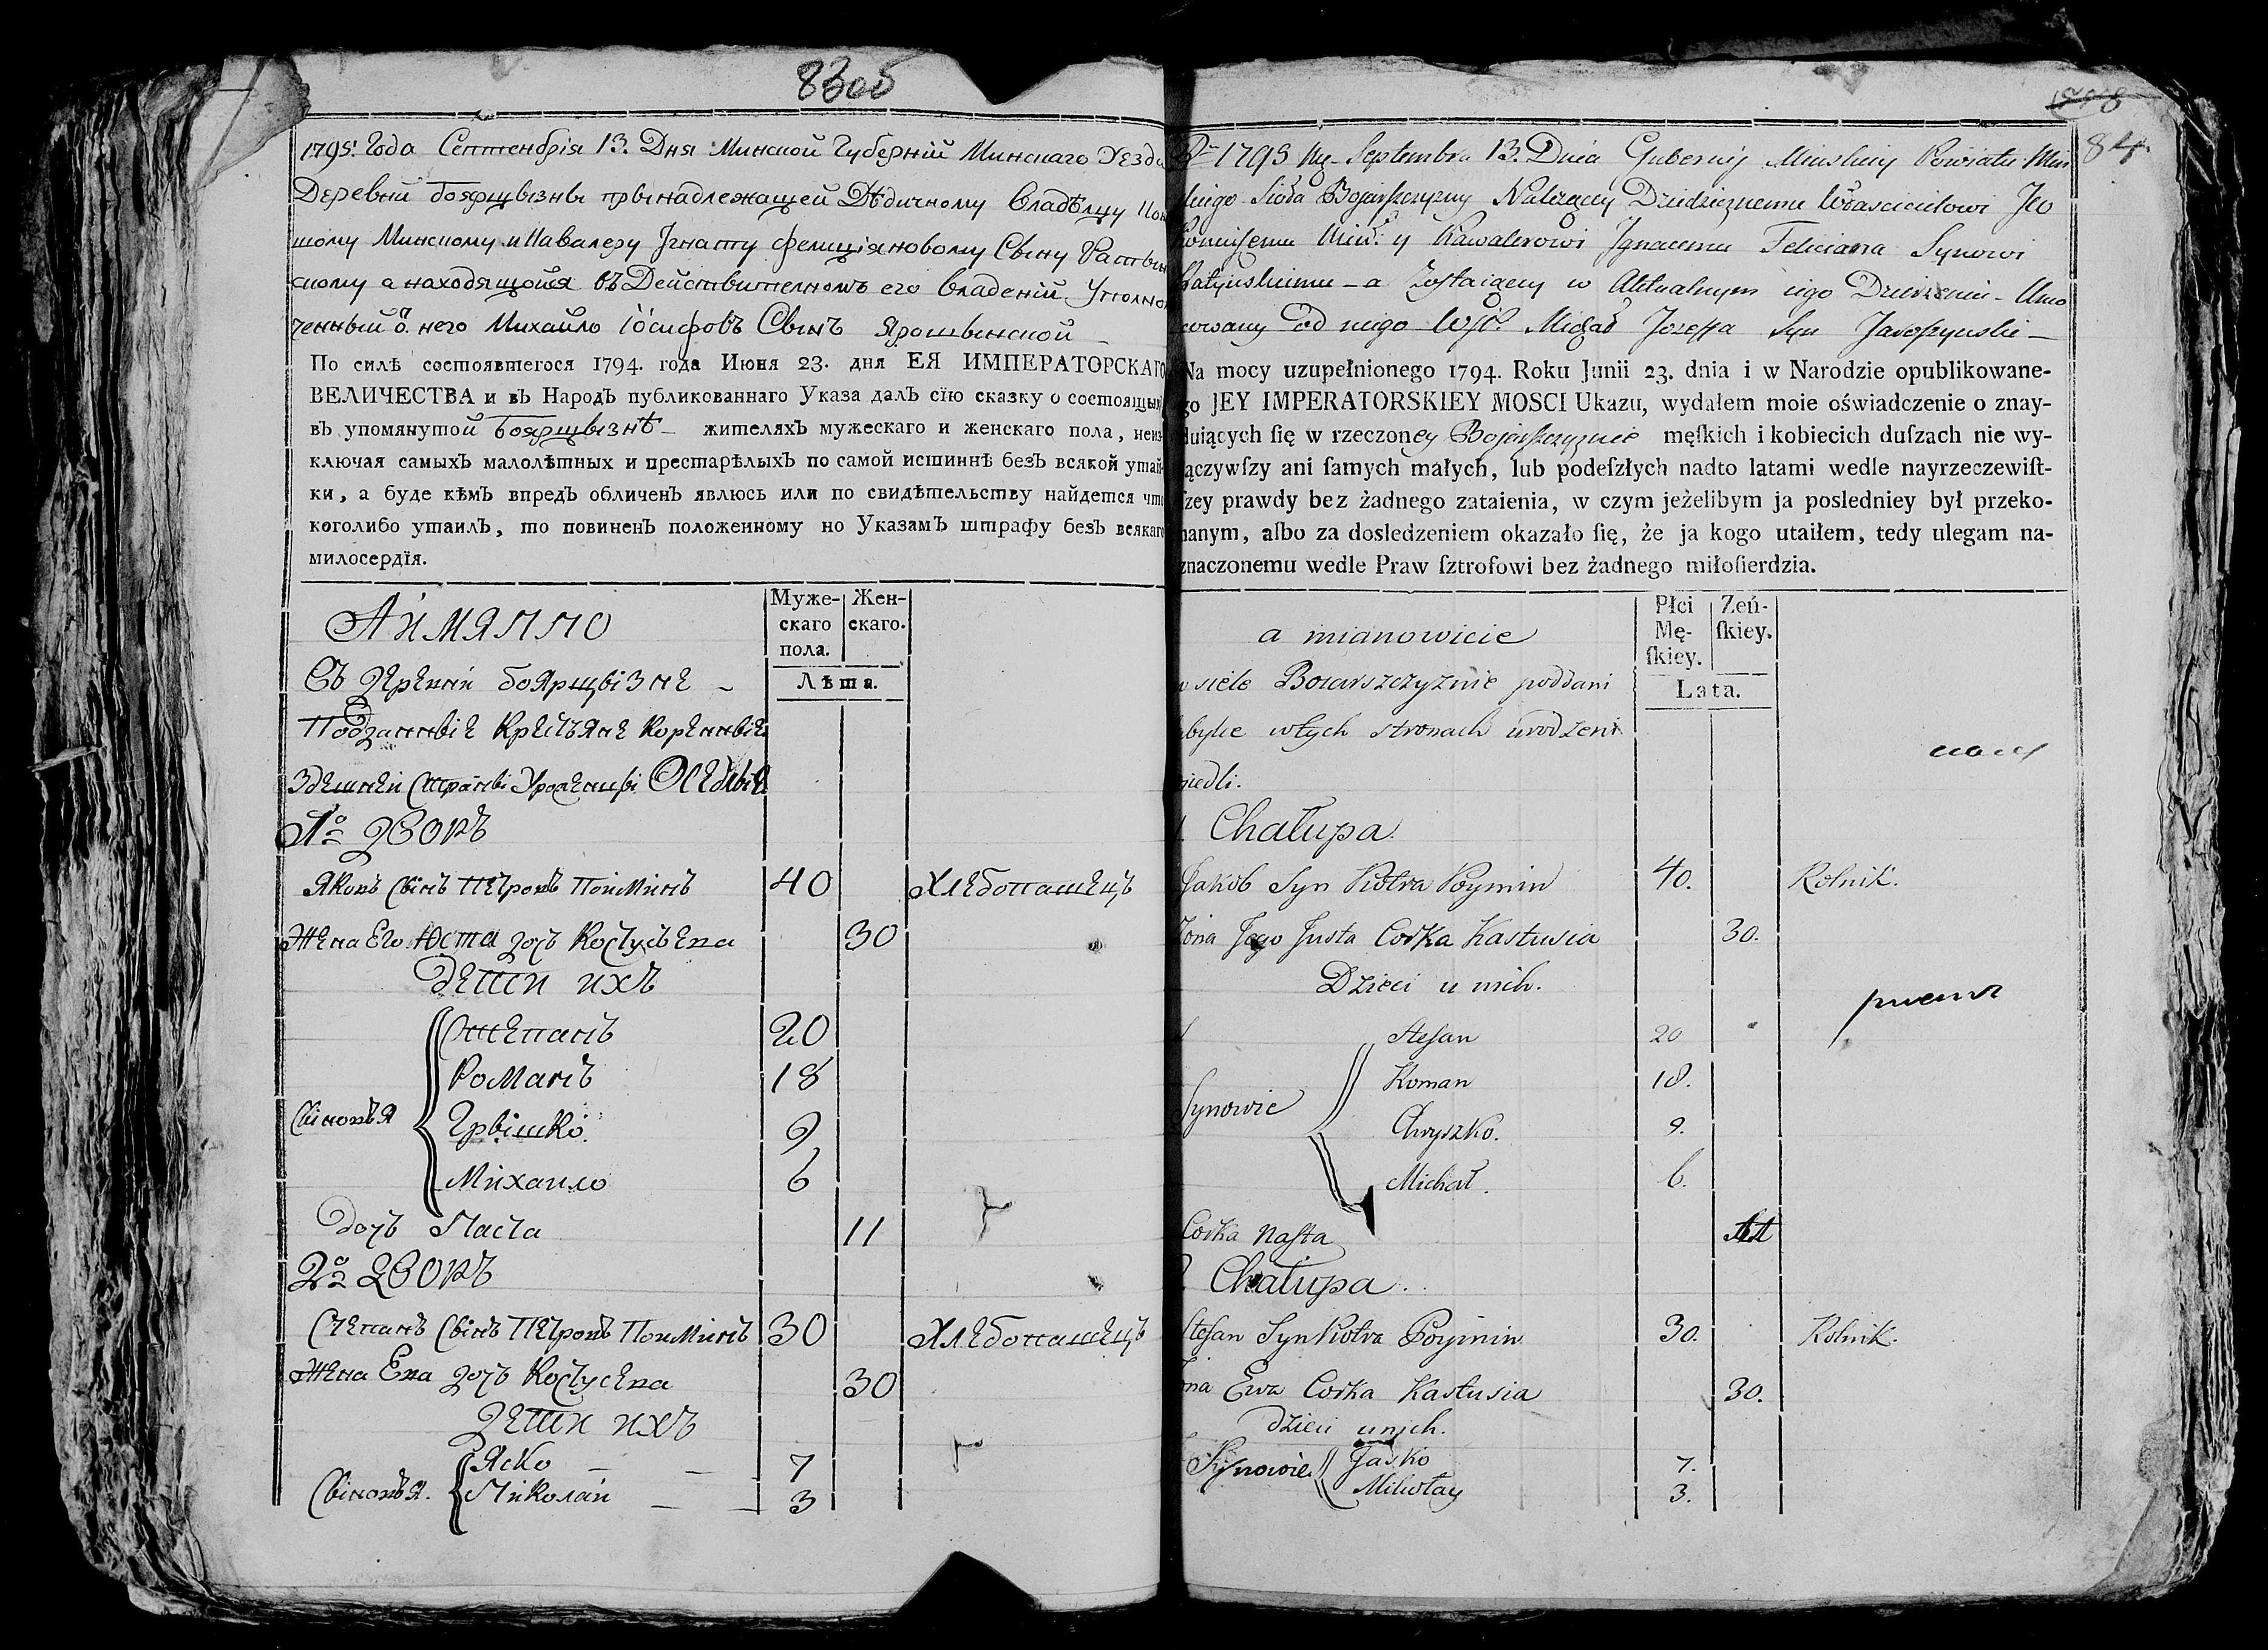 83об
1795: Года Септенбрія 13. Дня Минской Губерній Минскаго Уезда
Деревни боярщызны прынадлежащей Дѣдичному Владѣлцу
Минскому и Кавалеру Ігнату Фелиціяновому Сыну
скому а находящойся въ Действителномъ его владеній
ченный о него Михайло Іосифовъ Сынъ Ярошынской
По силѣ состоявшегося 1794. года Июня 23. дня ЕЯ ИМПЕРАТОРСКАГО
ВЕЛИЧЕСТВА и въ Народъ публикованнаго Указа далъ сїю сказку о состоящых
въ упомянутой Боярщызнѣ – жителяхъ мужескаго и женскаго пола, неис-
ключая самыхъ малолѣтных и престарѣлыхъ по самой истиннѣ безъ всякой утай-
ки, а буде кѣмъ впредъ обличенъ явлюсь или по свидѣтельству найдется что
коголибо утаилъ, то повиненъ положенному по Указамъ штрафу безъ всякаго
милосердїя.
А ИМЯННО
Муже-
скаго
пола.
Жен-
скаго.
Лѣта.
Въ деревни боярщвізне –
Подданныіе Крестьяне Коренныіе
Здешней Страны Уроженцы Оседлые
1о дворъ
Яковъ Сынъ Петровъ Пойминъ 40 Хлебопашецъ
Жена Его Юста дочъ Костусева 30
дети ихъ
Сыновья
Степанъ 20
Романъ 18
Грышко. 9
Михаило 6
Дочъ Наста 11
2о дворъ
Степанъ Сынъ Петровъ Пойминъ 30 Хлебопашецъ
Жена Ева дочъ Костусева 30
дети ихъ
Сыновья.
Яско – – 7
Миколай – – 3
84
1795 Septembra 13. Dnia Gubernij Minskiey Powiatu Min
skiego Sioła Bojarszczyzny Należącey Dziedzicznemu Właścicielowi Jeo
y Kawalerowi Ignacemu Feliciana Synowi
Ratyńskiemu – a zostaiącey w Aktualnym iego Dzierżeniu – Umo
cowany od niego Michał Jozeffa Syn Jaroszynski –
Na mocy uzupełnionego 1794. Roku Junii 23. dnia i w Narodzie opublikowane-
go JEY IMPERATORSKIEY MOSCI Ukazu, wydałem moie oświadczenie o znay-
duiących ſię w rzeczoney Bojarszczyznie męſkich i kobiecich duſzach nie wy-
łączywſzy ani ſamych małych, lub podeſzłych nadto latami wedle nayrzeczewiſt-
ſzey prawdy bez żadnego zataienia, w czym jeżelibym ja posledniey był przeko-
nanym, albo za dosledzeniem okazało ſię, że ja kogo utaiłem, tedy ulegam na-
znaczonemu wedle Praw ſztrofowi bez żadnego miłoſierdzia.
a mianowicie
Płci
Mę-
ſkiey.
Zeń-
ſkiey.
Lata.
w siele Boiarszczyznie poddani
w tych stronach urodzeni
siedli.
1. Chałupa.
Jakob Syn Piotra Poymin 40. Rolnik.
Żona Jego Justa Corka Kastusia 30.
Dzieci u nich.
Synowie
Stefan 20
Roman 18.
Chryszko. 9.
Michał. 6.
Corka Nasta 11
2. Chałupa.
Stefan Syn Piotra Poymin 30. Rolnik.
Żona Ewa Corka Kastusia 30.
dzieci u nich.
Synowie
Jasko 7.
Mikołay 3.